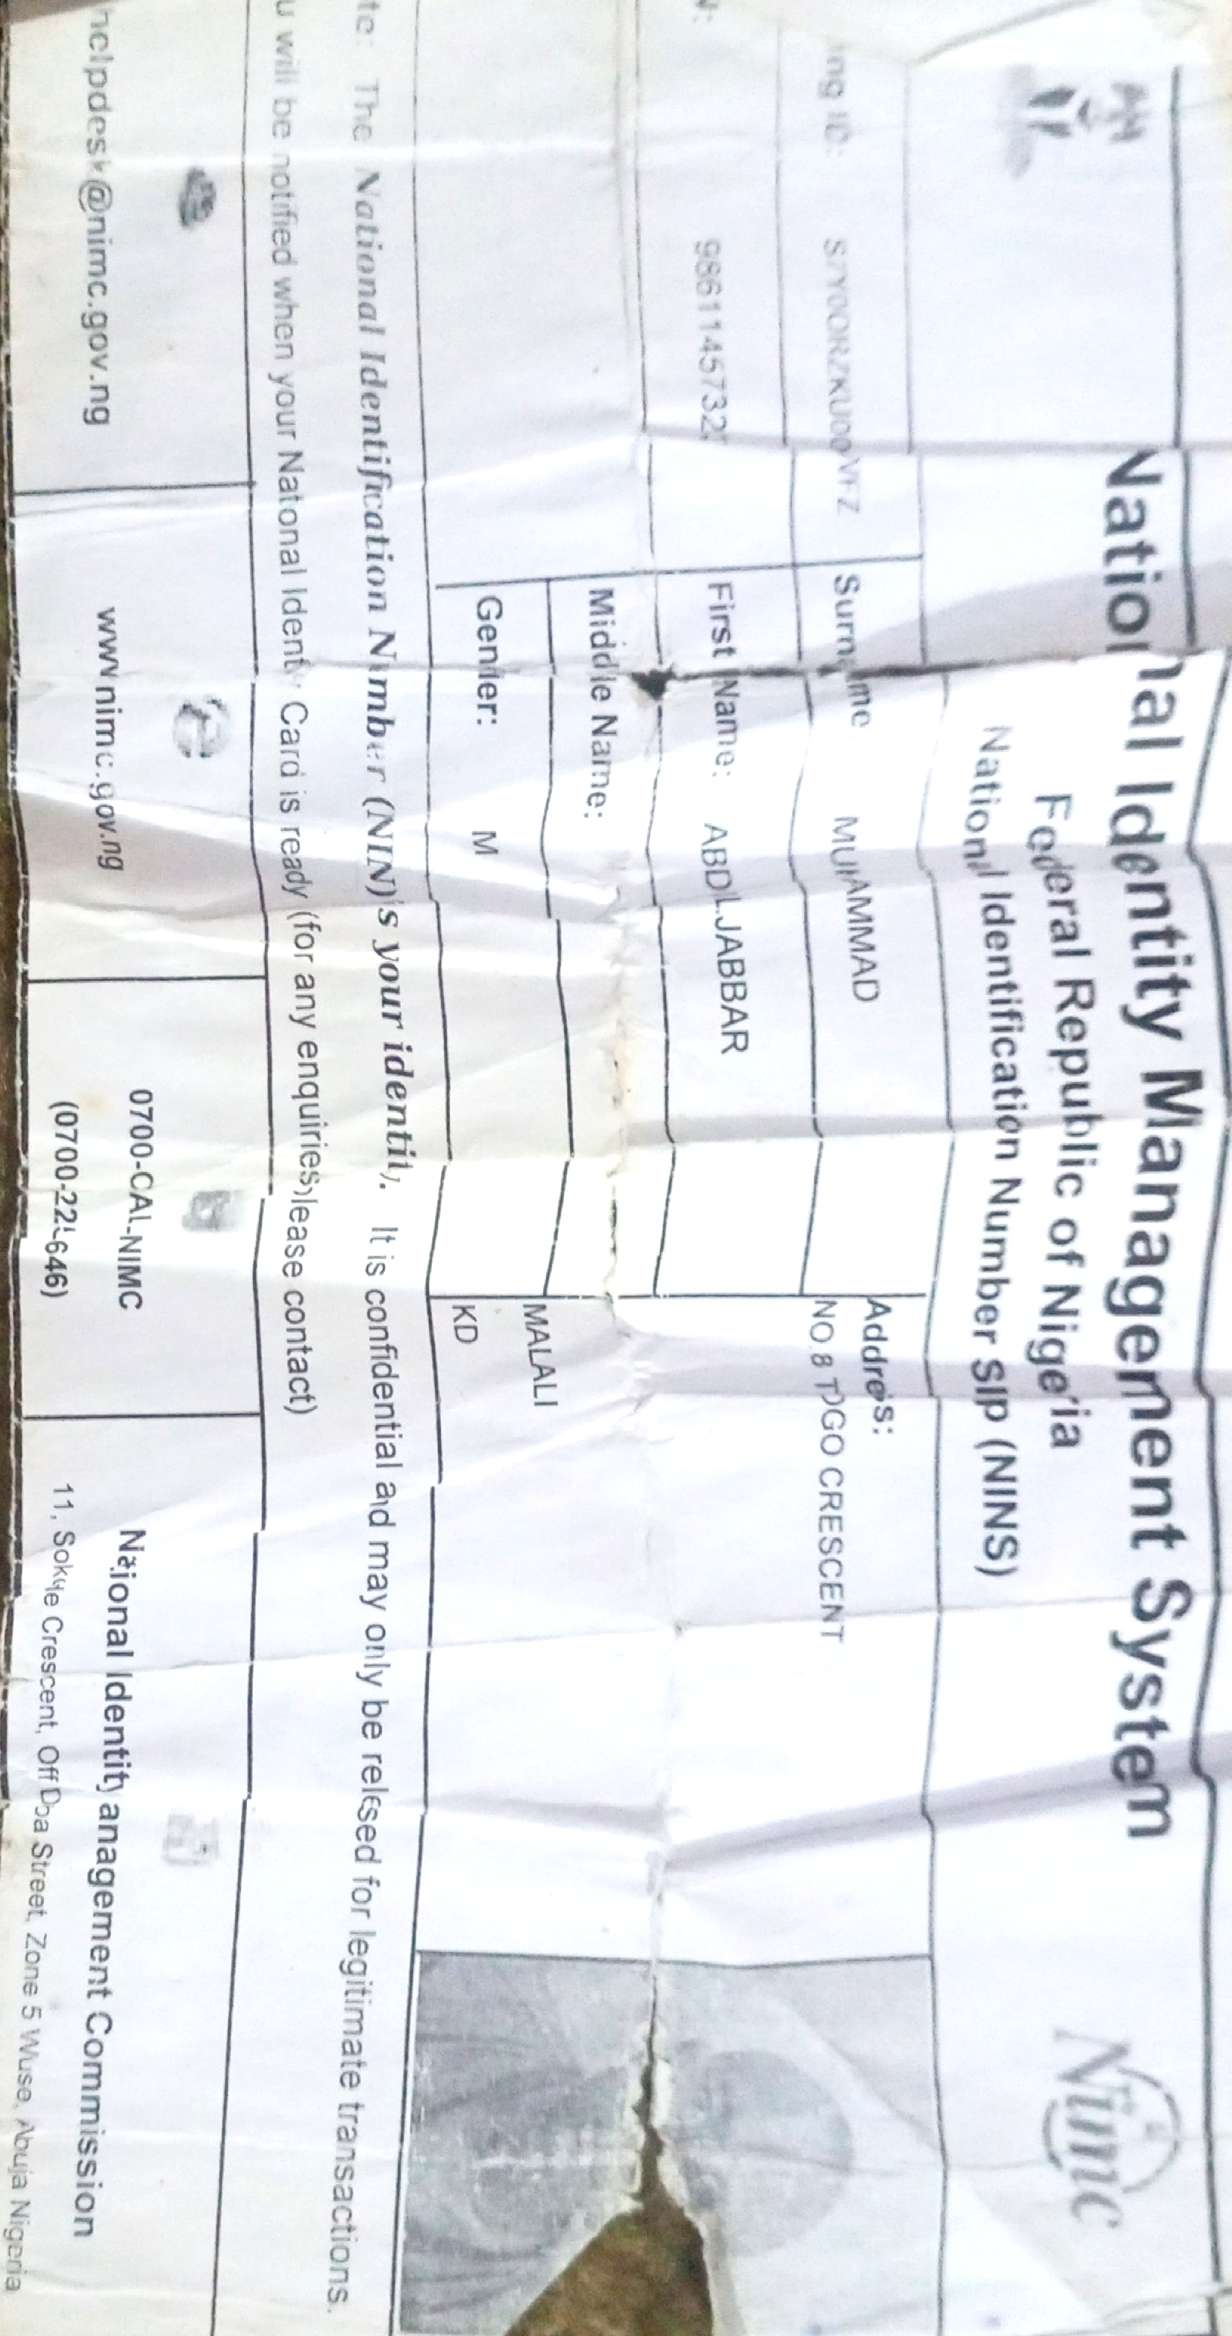 National Identity Management System
Federal Republic of Nigeria
National Identification Number Slip (NINS)
Nimc
Surname MUHAMMAD
Address:
NO.8 TOGO CRESCENT
9861145732
First Name: ABDLJABBAR
Middle Name:
MALALI
Gender: M
KD
The National Identification Number (NIN) is your identity. It is confidential and may only be released for legitimate transactions.
will be notified when your Natonal Identity Card is ready (for any enquiries please contact)
helpdesk@nimc.gov.ng
www.nimc.gov.ng
0700-CALL-NIMC
(0700-2255-646)
National Identity Management Commission
11, Sokode Crescent, Off Dalaba Street, Zone 5 Wuse, Abuja Nigeria